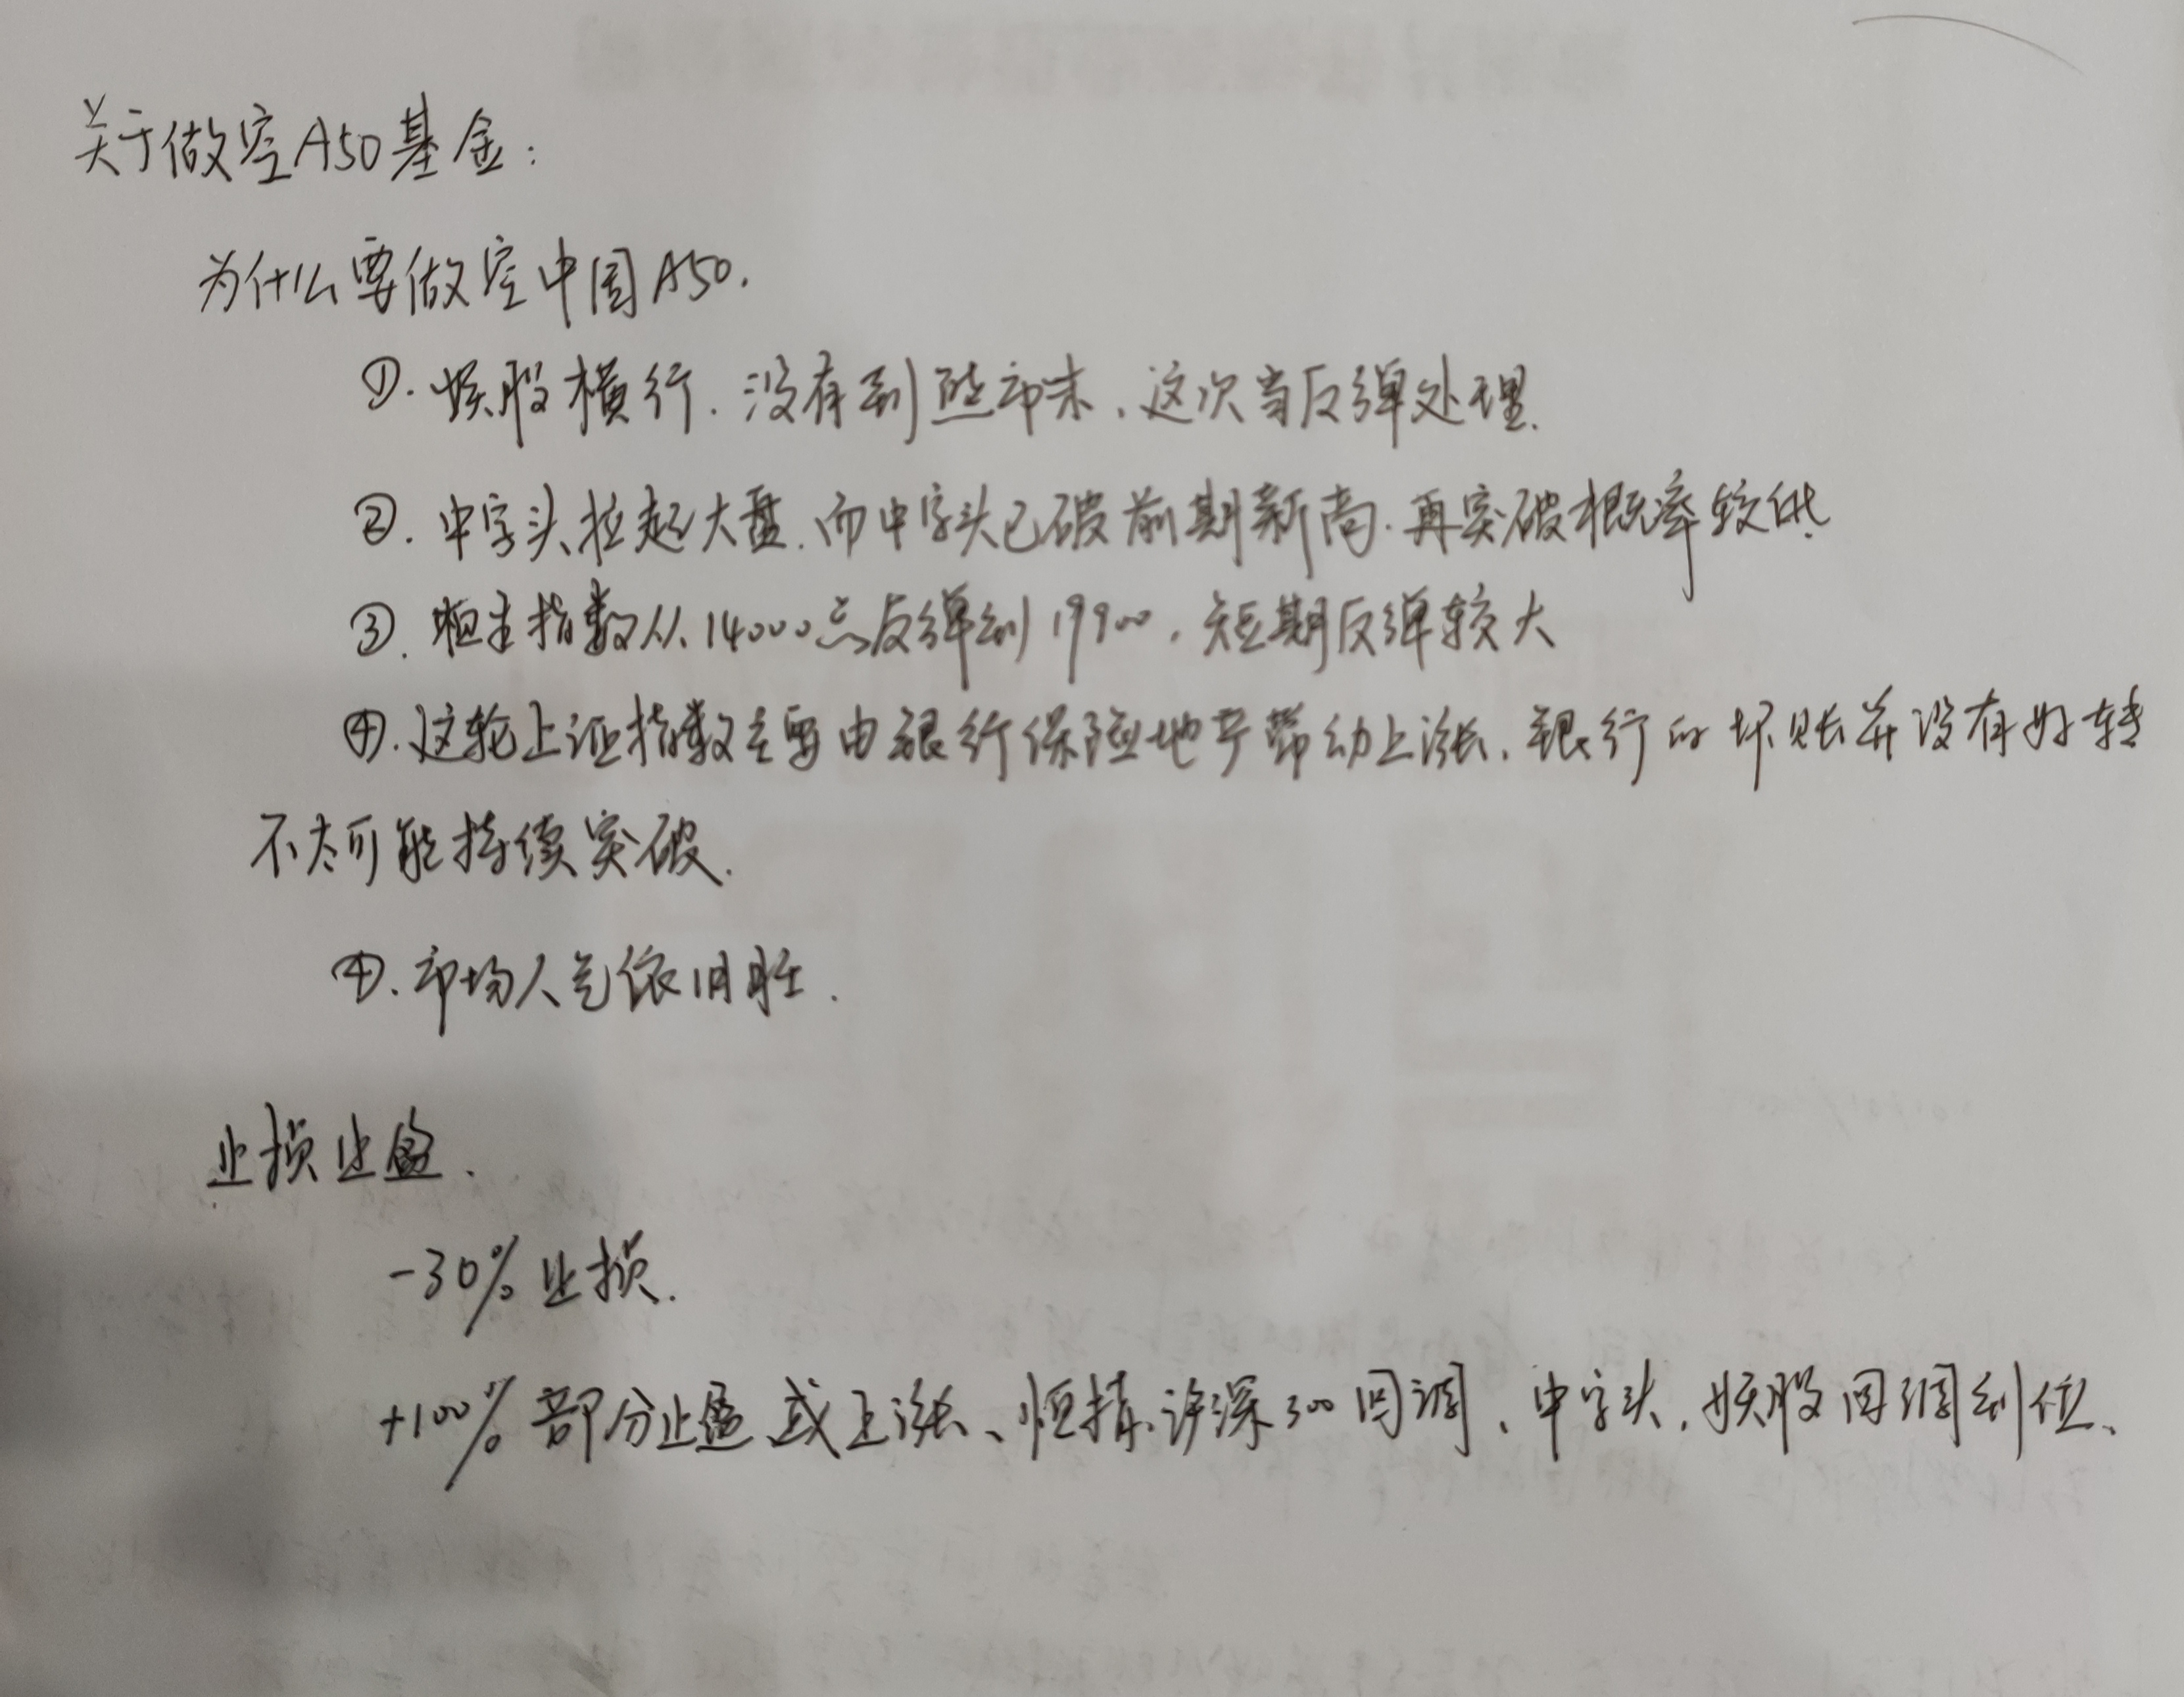 关于做空A50基金：
为什么要做空中国A50.
①. 妖股横行. 没有到熊市末，这次当反弹处理.
②. 中字头拉起大盘. 而中字头已破前期新高. 再突破概率较低.
③. 恒生指数从14000点反弹到19900，短期反弹较大
④. 这轮上证指数主要由银行保险地产带动上涨. 银行的坏账并没有好转
不太可能持续突破.
④. 市场人气依旧旺.
止损止盈.
-30% 止损.
+100% 部分止盈或上涨、恒指、沪深300回调、中字头，妖股回调到位、